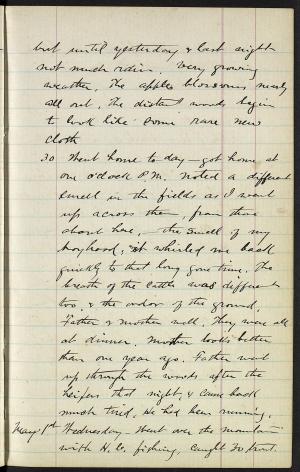 but until yesterday & last night
not much rain. Very growing
weather. The apple blossoms nearly
all out. The distant woods begin
to look like some rare new
cloth
30 Went home to-day – got home at
one o'clock P.M. noted a different
smell in the fields as I went
up across them, from those
about here, – the smell of my
boyhood, it whirled me back
quickly to that long gone time. The
breath of the cattle was different
too, & the odor of the ground.
Father & mother well. They were all
at dinner. Mother looks better
than one year ago. Father went
up through the woods after the
heifers that night, & came back
much tired. He had been running.
May 1st Wednesday Went over the mountain
with H. fishing, caught 30 trout.